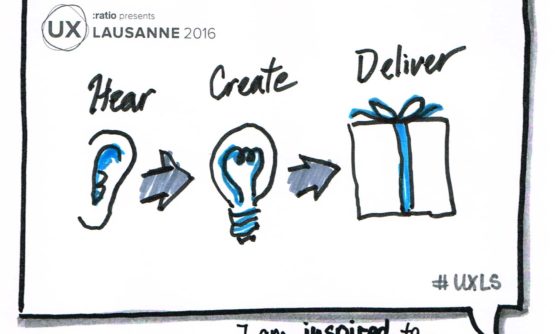 :ratio presents
UX LAUSANNE 2016
Hear Create Deliver
#UXLS
I am inspired to